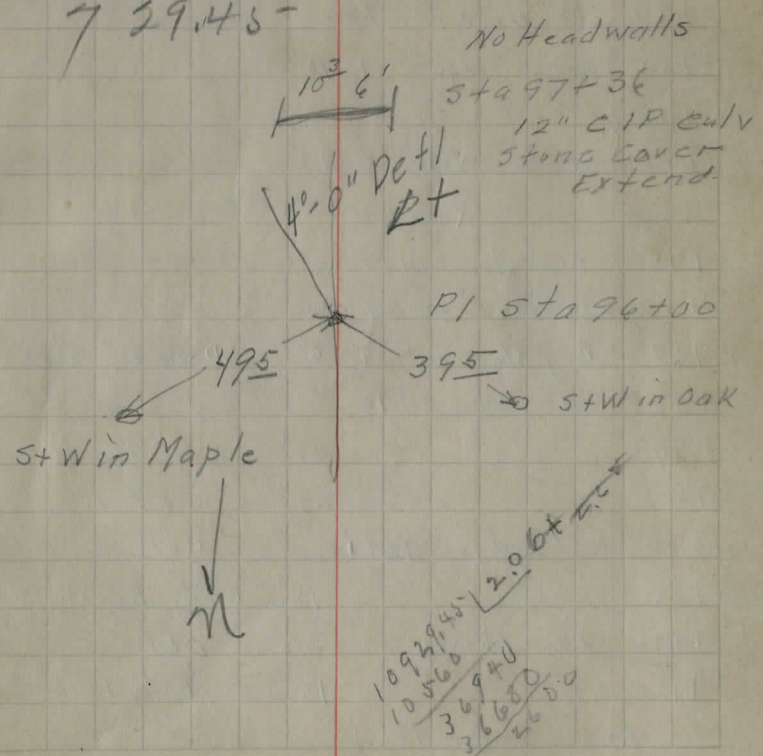 7 29.45
No Headwalls
10³ 6'
Sta 97+36
12" CIP Culv
Stone Cover
Extend.
4°-0" Defl
Rt
PI Sta 96+00
495
395
S+W in Oak
S+W in Maple
N
2.06+
10929.45
10560
36940
36680
260.0